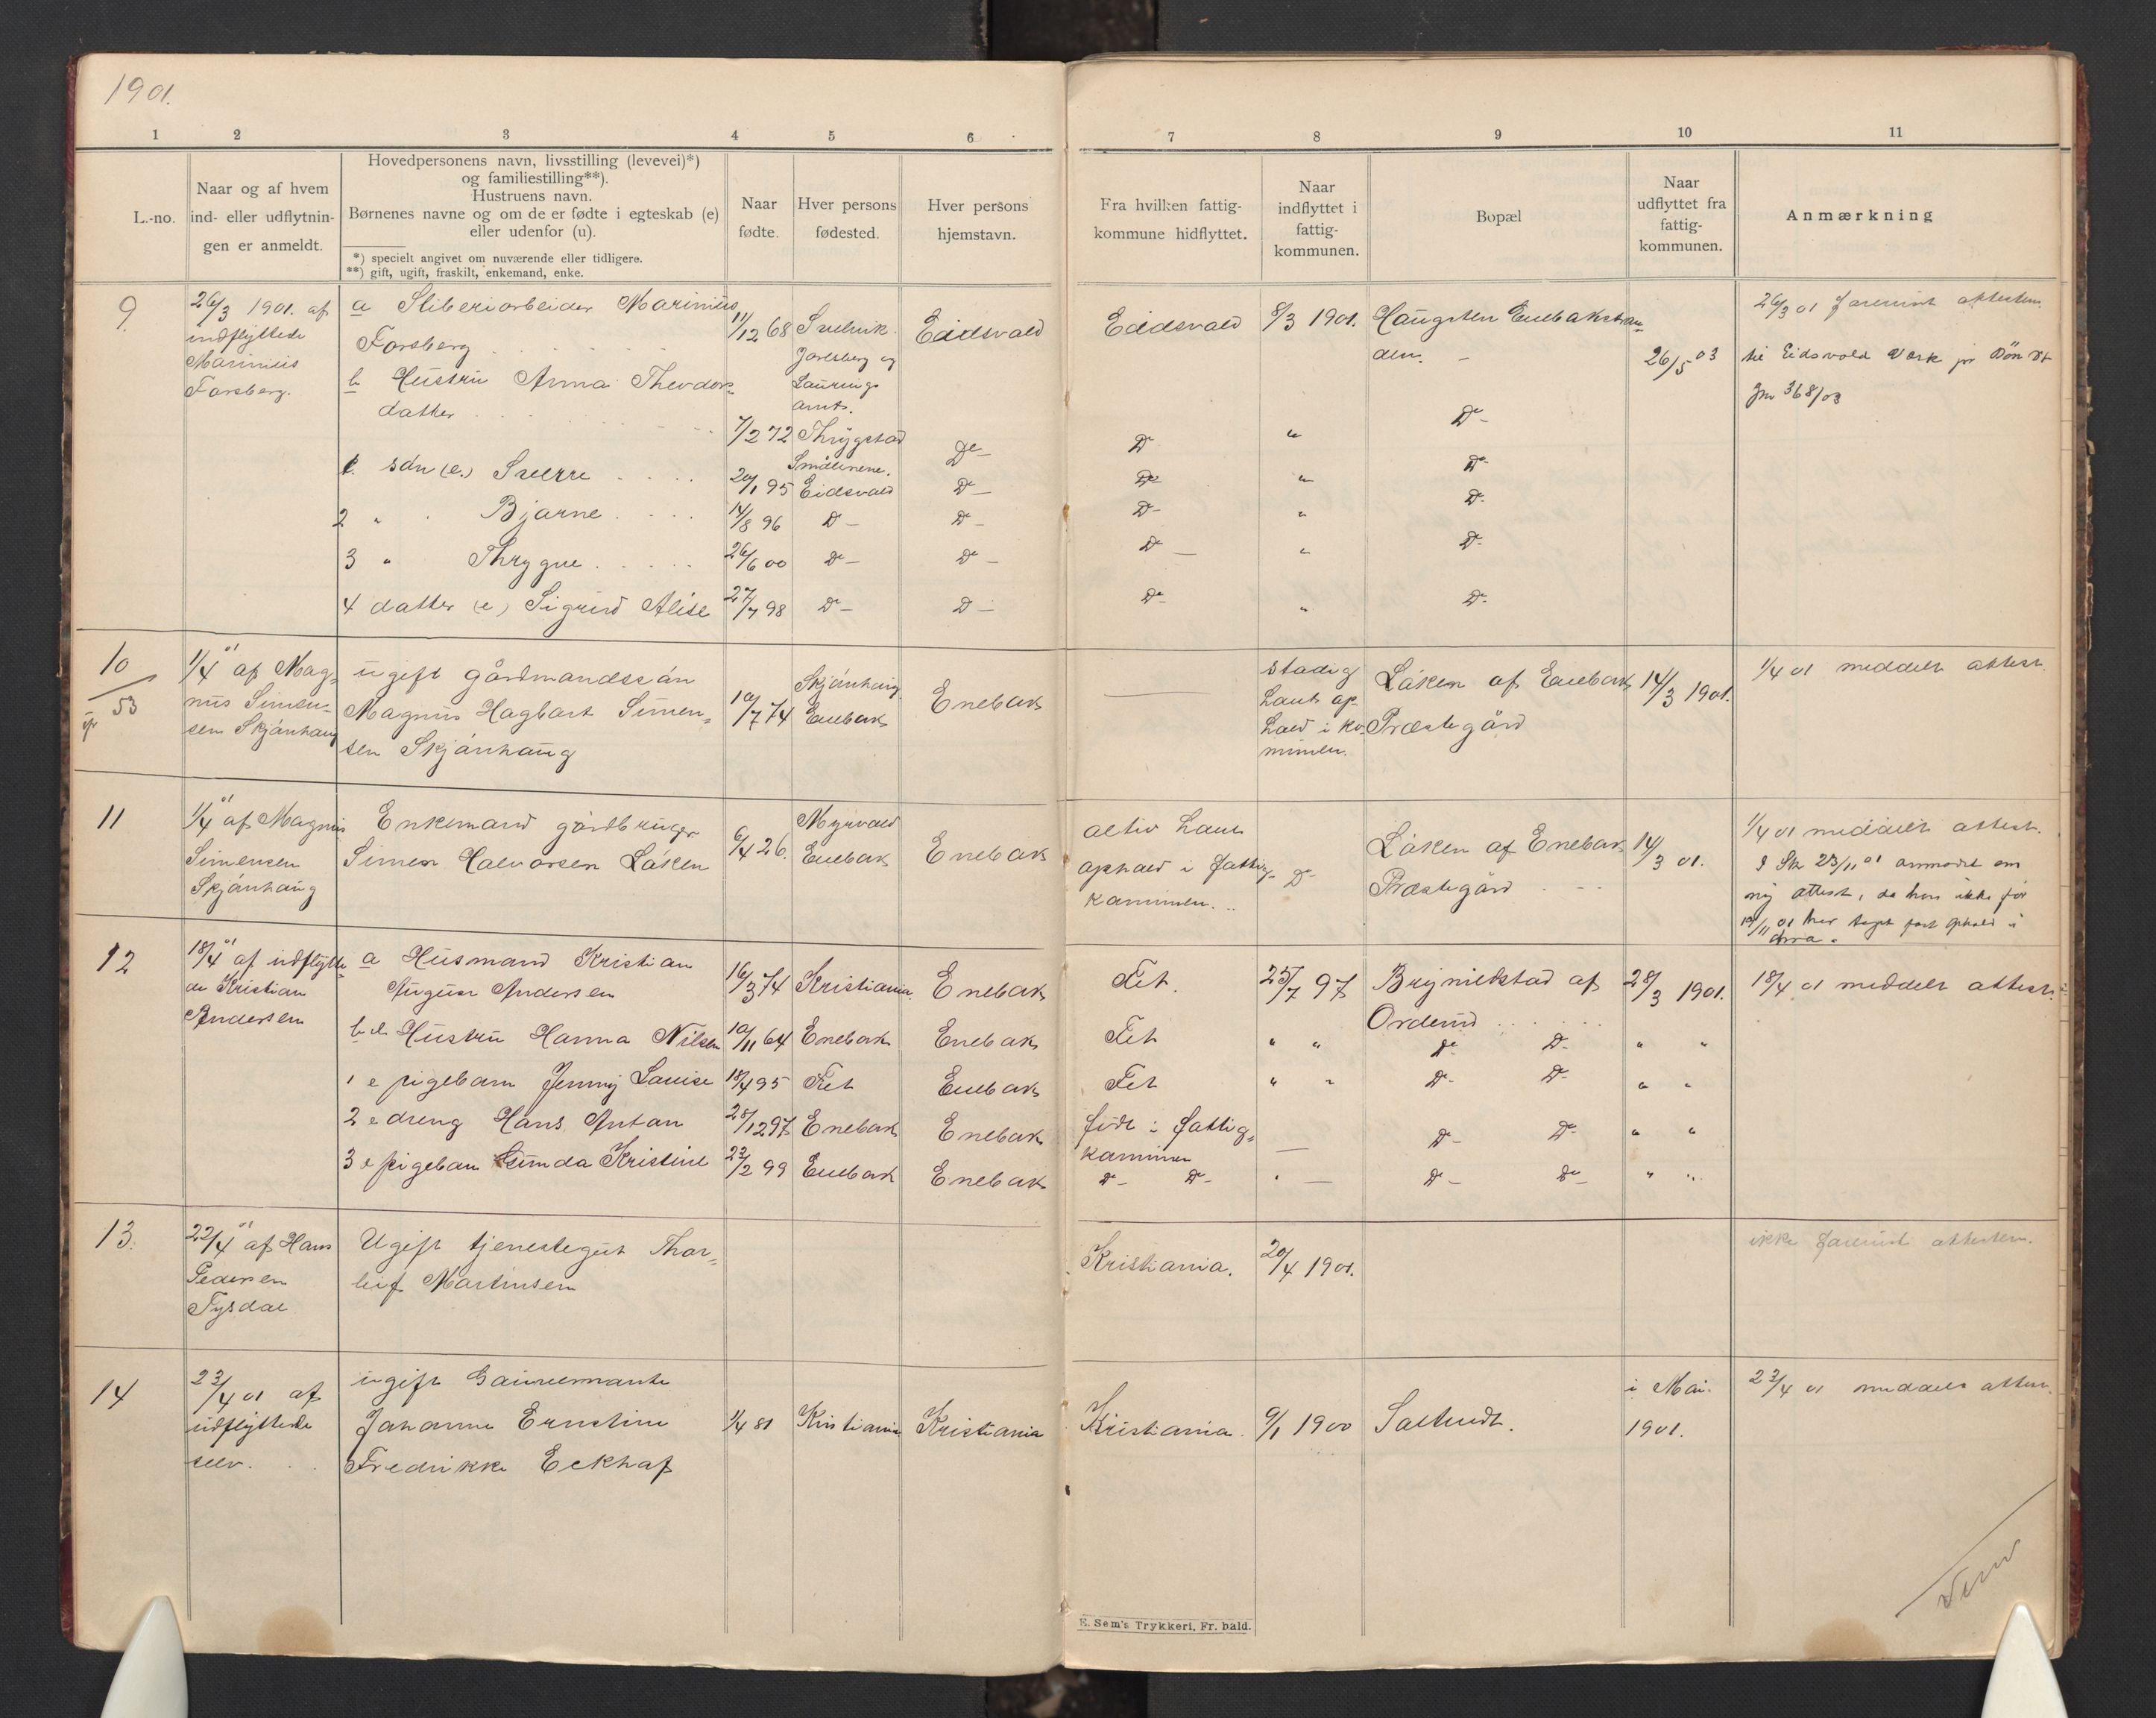 1901.
1 2 3 4 5 6 7 8 9 10 11
L.-no.
Naar og af hvem
ind- eller udflytnin-
gen er anmeldt.
Hovedpersonens navn, livsstilling (levevei)*)
og familiestilling**).
Hustruens navn.
Børnenes navne og om de er fødte i egteskab (e)
eller udenfor (u).
*) specielt angivet om nuværende eller tidligere.
**) gift, ugift, fraskilt, enkemand, enke.
Naar
fødte.
Hver persons
fødested.
Hver persons
hjemstavn.
Fra hvilken fattig-
kommune hidflyttet.
Naar
indflyttet i
fattig-
kommunen.
Bopæl
Naar
udflyttet fra
fattig-
kommunen.
Anmærkning
9
26/3 1901. af
indflyttede
Marinius
Forsberg.
a Sliberiarbeider Marinius
Forsberg
b Hustru Anna Theodors-
datter
1. søn (e.) Sverre
2 " Bjarne
3 " Thrygve
4 datter (e) Sigrid Alise
11/12 68
7/2 72
20/1 95
14/8 96
26/6 00
27/7 98
Svelvik.
Jarlsberg og
Laurvigs
amt.
Thrygstad
Smålenene.
Eidsvold
Do -
Do -
Do -
Eidsvold
Do -
Do -
Do -
Do -
Do -
Eidsvold
Do
Do
Do -
Do -
Do -
8/3 1901.
"
"
"
"
"
Haugsten Enebakstran-
den. -
Do -
Do -
Do -
Do -
Do -
26/5 03
26/3 01 forevist attesten.
til Eidsvold Værk
Jnr 368/03
10
53
1/4 01 af Mag-
nus Simen-
sen Skjønhaug
ugift gårdmandssøn
Magnus Hagbart Simen-
sen Skjønhaug
10/7 74
Skjønhaug
Enebak
Enebak
stadig
havt op
hold i ko-
munen.
Løken af Enebak
Præstegård
14/3 1901.
1/4 01 meddelt attest.
11
1/4 01 af Magnus
Simensen
Skjønhaug
Enkemand gårdbruger
Simen Halvorsen Løken
6/4 26.
Myrvold
Enebak
Enebak
altid havt
ophold i fattig-
kommunen.
Do -
Løken af Enebak
Præstegård
14/3 01.
1/4 01 meddelt attest.
I Skr 23/11 01 anmodet om
ny attest, da han ikke før
19/11 01 har taget fast ophold i
12
18/4 01 af udflytte-
de Kristian
Andersen
a Husmand Kristian
August Andersen
b Hustru Hanna Nilsen
1 e pigebarn Jenny Lovise
2 e dreng Hans Anton
3 e pigebarn Gunda Kristine
16/3 74
10/11 64
18/4 95
28/12 97
22/2 99
Kristiania
Enebak
Fet
Enebak
Enebak
Enebak
Enebak
Enebak
Enebak
Enebak
Fet.
Fet
Fet
født i fattig-
kommunen
Do - Do -
25/7 97
" "
" "
Brynildstad af
Orderud
Do Do
Do - Do -
Do - Do -
Do - Do -
28/3 1901.
" "
" "
" "
" "
18/4 01 meddelt attest.
13.
22/4 01 af Hans
Pedersen
Tysdal
Ugift tjenestegut Thor-
leif Martinsen
Kristiania.
20/4 1901.
ikke forevist attesten.
14
23/4 01 af
udflyttede
selv.
ugift
Johanne Ernstine
Fredrikke Eckhof
1/4 81
Kristiania
Kristiania
Kristiania.
9/1 1900
i Mai.
1901.
23/4 01 meddelt attest.
E. Sem's Trykkeri, Fr. hald.